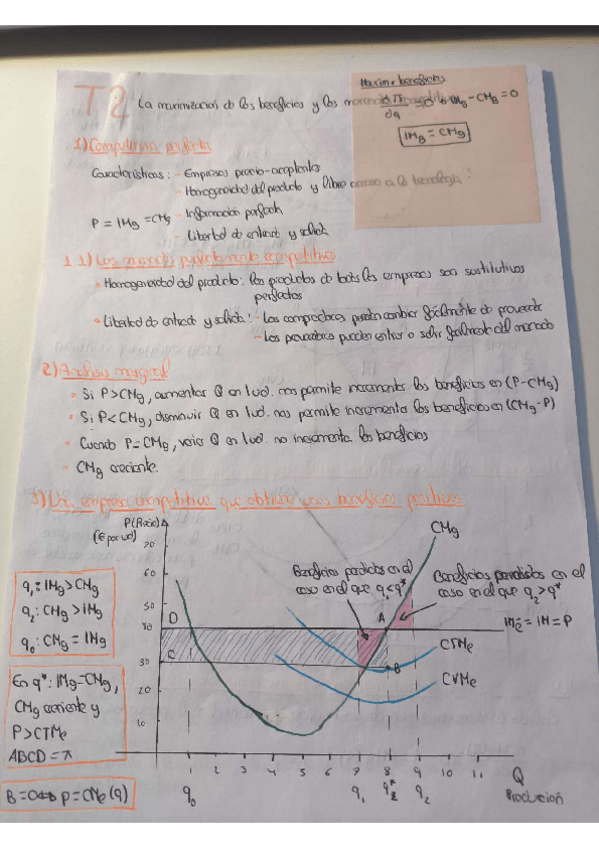 T2 La maximización de los beneficios y los
Maximo beneficios
dπ/dq = 0 IMg - CMg = 0
IMg = CMg
1) Competencia perfecta
Características: - Empresas precio-aceptantes
- Homogeneidad del producto y libre acceso a la tecnología
P = IMg = CMg - Información perfecta
- Libertad de entrada y salida
1.1) Los mercados perfectamente competitivos
• Homogeneidad del producto: los productos de todas las empresas son sustitutivos
perfectos
• Libertad de entrada y salida: - Los compradores pueden cambiar fácilmente de proveedor
- Los proveedores pueden entrar o salir fácilmente del mercado
2) Análisis marginal
• Si P>CMg, aumentar Q en 1 ud. nos permite incrementar los beneficios en (P-CMg)
• Si P<CMg, disminuir Q en 1 ud. nos permite incrementar los beneficios en (CMg-P)
• Cuando P=CMg, variar Q en 1 ud. no incrementa los beneficios
- CMg creciente.
3) Una empresa competitiva que obtiene unos beneficios positivos
P(Precio)
(€ por ud)
CMg
70
60
50
40
30
20
10
q₁: IMg>CMg
q₂: CMg>IMg
q₀: CMg=IMg
Beneficios perdidos en el
caso en el que q₁<q*
Beneficios perdidos en el
caso en el que q₂>q*
D
A
IMe = IM = P
C
B
CTMe
CVMe
En q*: IMg=CMg,
CMg creciente y
P>CTMe
ABCD = π
B=0 ⇔ P=CMe(q)
1 2 3 4 5 6 7 8 9 10 11 Q
q₀ q₁ q* q₂ Producción